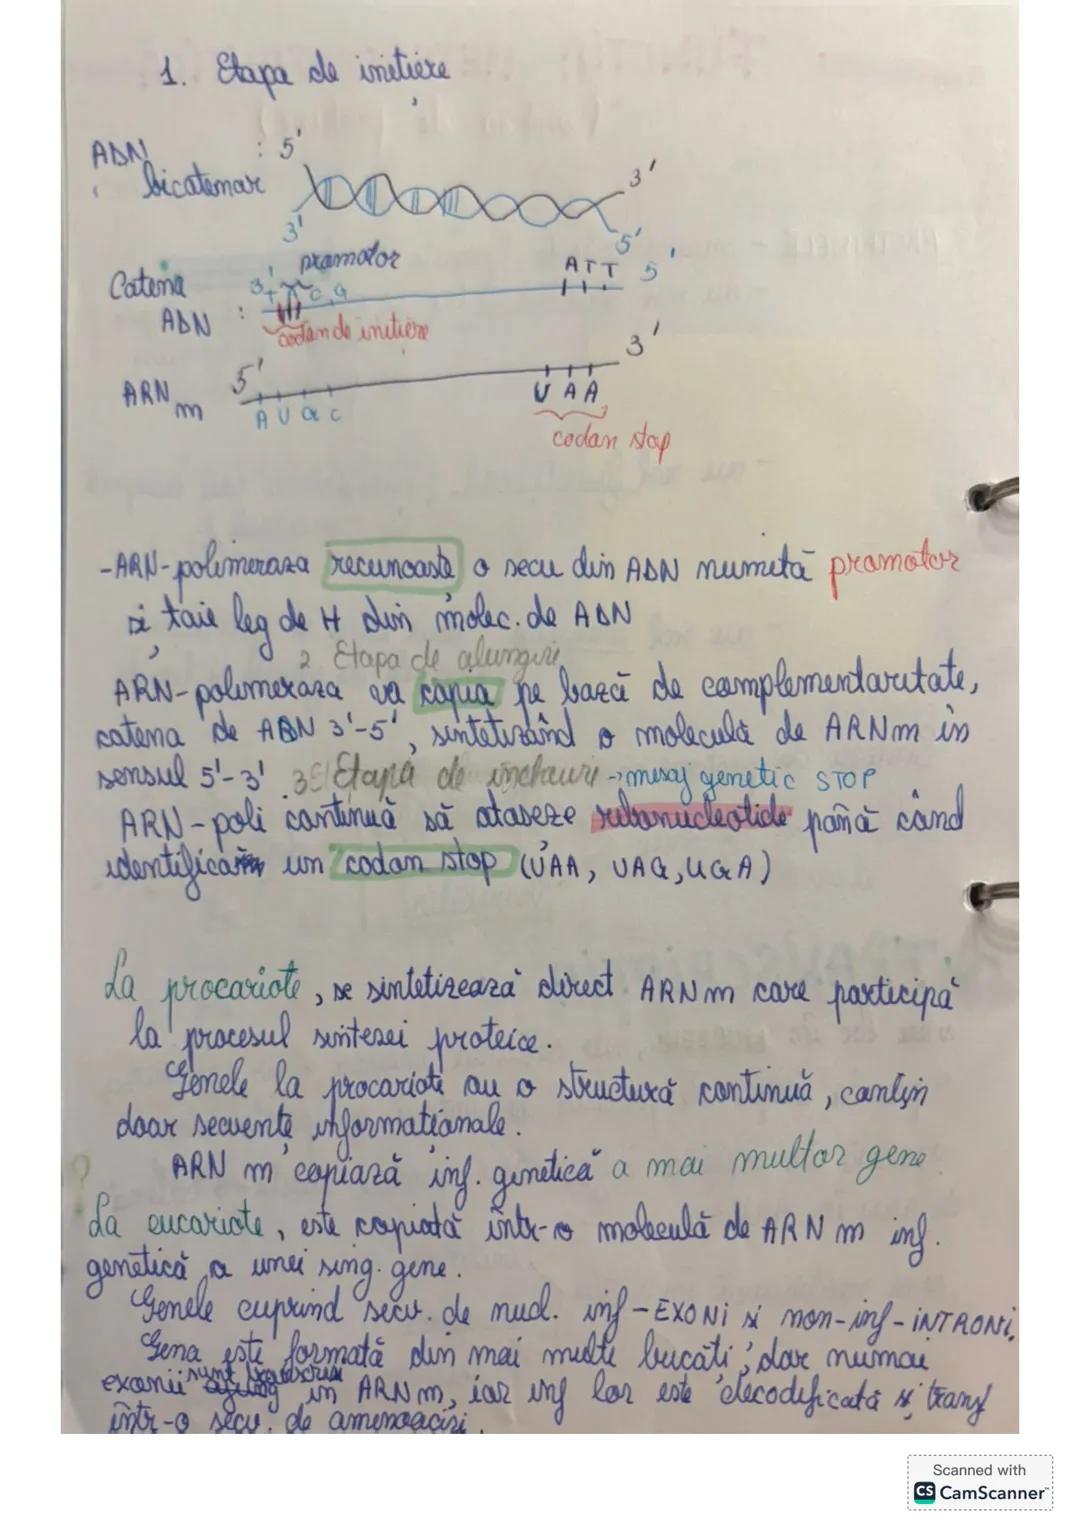 1. Etapa de inițiere
ADN : 5'
bicatenar 3'
3' 5'
promotor
Catena 3' T A C G ATT 5'
ADN :
codon de inițiere
3'
ARN m 5'
A U G C U A A
codon stop
-ARN-polimeraza recunoaste o secv din ADN numită promotor
și taie leg de H din molec. de ADN
2 Etapa de alungire
ARN-polimeraza va copia pe bază de complementaritate,
catena de ADN 3'-5', sintetizând o moleculă de ARNm în
sensul 5'-3'. 3 Etapa de incheiere → mesaj genetic STOP
ARN-poli continuă să atașeze ribonucleotide până când
identifica un codon stop (UAA, UAG, UGA)
La procariote, se sintetizează direct ARN m care participă
la procesul sintezei proteice.
Genele la procariote au o structură continuă, conțin
doar secvențe informaționale.
ARN m copiază inf. genetică a mai multor gene.
?
La eucariote, este copiată într-o moleculă de ARN m inf.
genetică a unei sing. gene.
Genele cuprind secv. de nucl. inf - EXONi și non-inf - iNTRONi.
Gena este formată din mai multe bucăți, dar numai
exonii sunt în ARN m, iar inf lor este decodificată și transf
într-o secv. de aminoacizi.
Scanned with
CS CamScanner